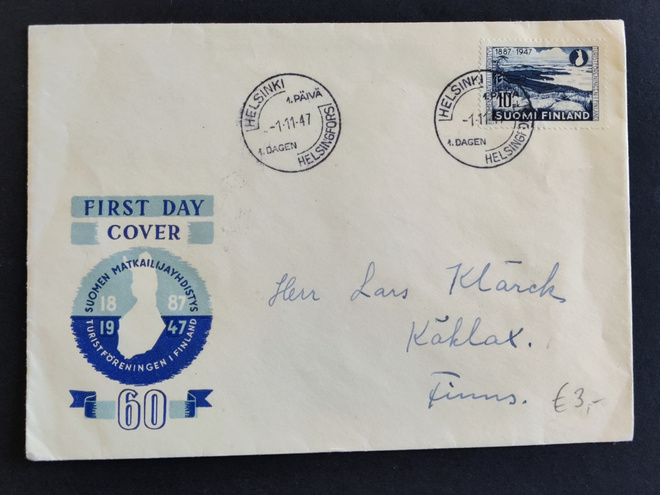 HELSINKI
1.PÄIVÄ
-1·11·47
1.DAGEN
HELSINGFORS
1887·1947
10
SUOMI FINLAND
HELSINKI
-1·11
1.DAGEN
FIRST DAY
COVER
SUOMEN MATKAILIJAYHDISTYS
18 87
19 47
TURISTFÖRENINGEN I FINLAND
60
Herr Lars Klärck
Köklax.
Finns.
€3,-